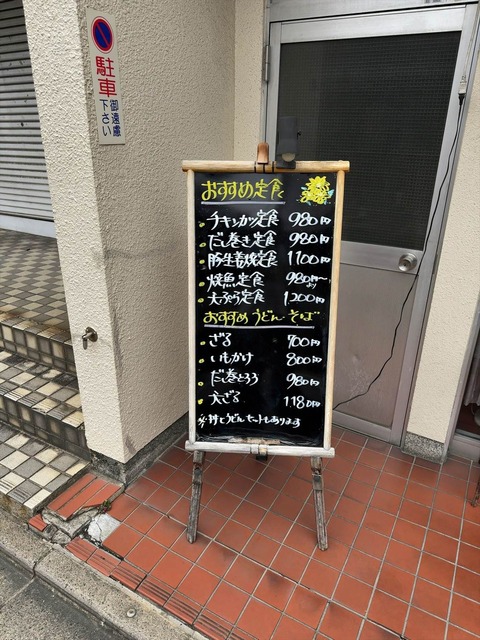 駐車
御遠慮
下さい
おすすめ定食
チキンカツ定食 980円
だし巻き定食 980円
豚生姜焼定食 1100円
焼魚定食 980円〜より
天ぷら定食 1,200円
おすすめうどん・そば
ざる 700円
いもかけ 800円
だし巻とろろ 980円
天ざる 1180円
うどんセットもあります